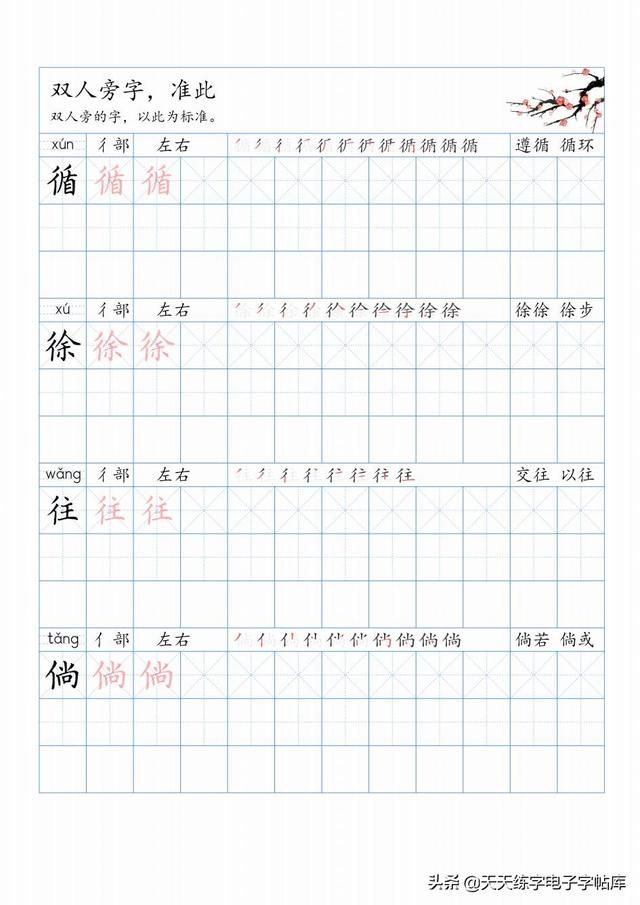 双人旁字，准此
双人旁的字，以此为标准。
xún 彳部 左右 遵循 循环
循 循 循
xú 彳部 左右 徐徐 徐步
徐 徐 徐
wǎng 彳部 左右 交往 以往
往 往 往
tǎng 亻部 左右 倘若 倘或
倘 倘 倘
头条 @天天练字电子字帖库